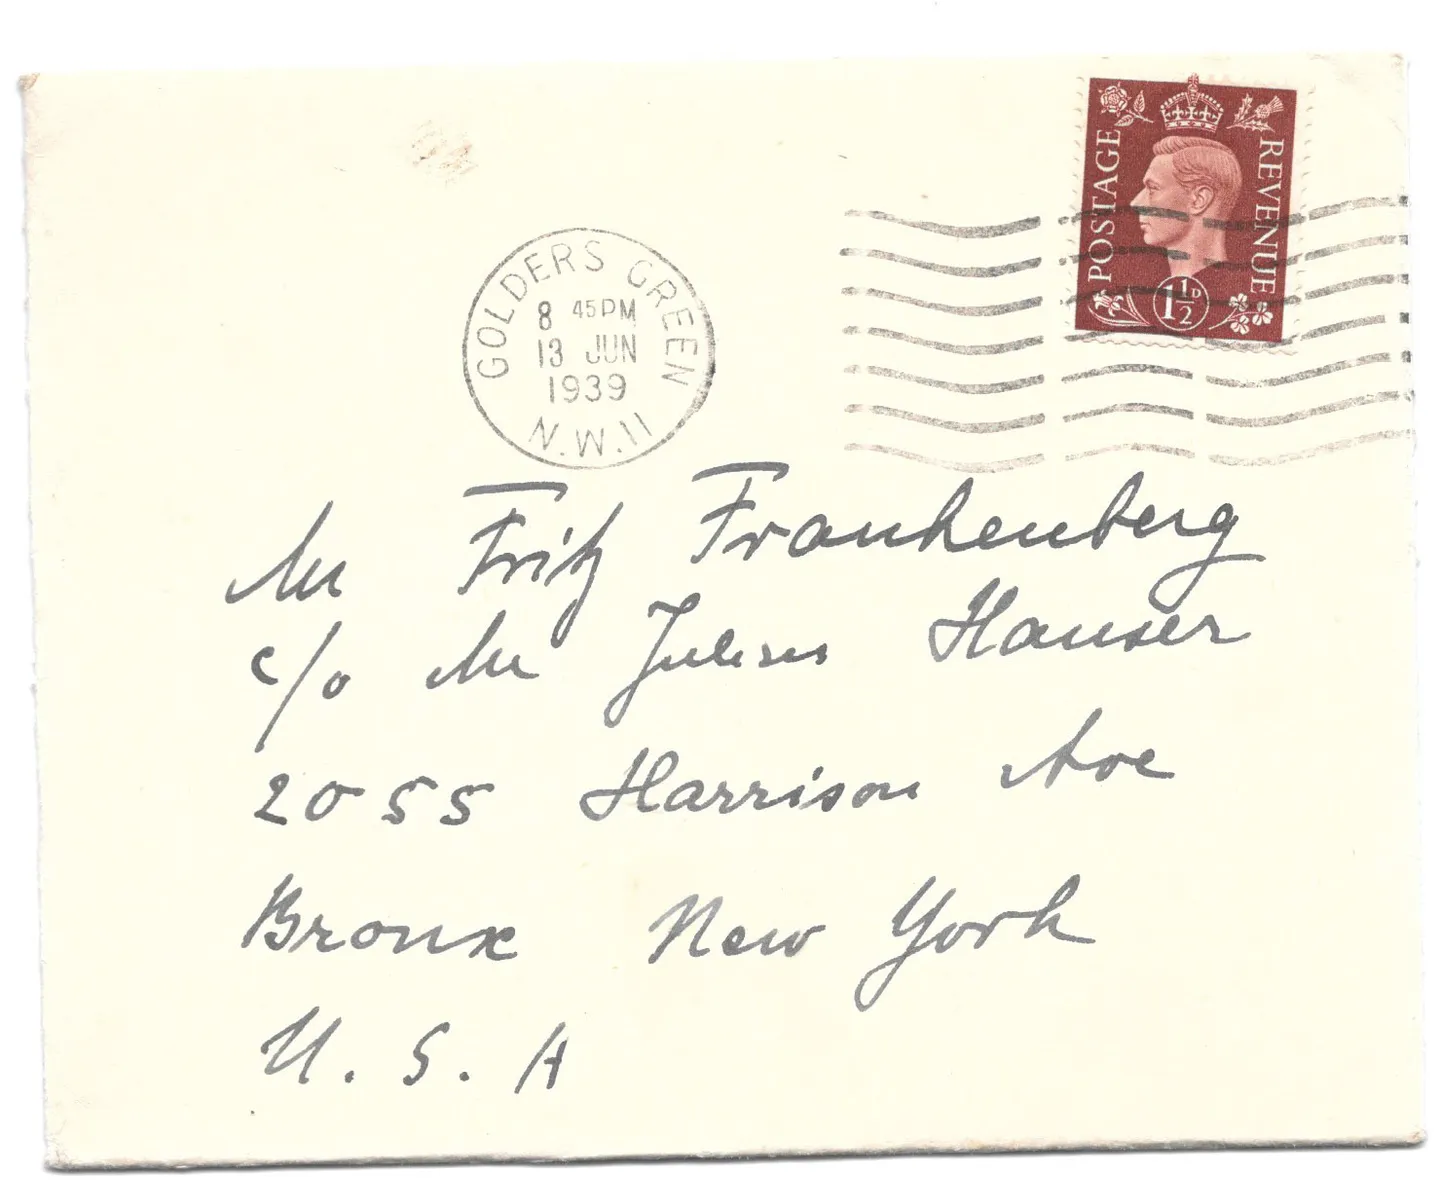 POSTAGE
REVENUE
1½D
GOLDERS GREEN
8 45PM
13 JUN
1939
N.W.11
Mr Fritz Frankenberg
c/o Mr Julius Hauser
2055 Harrison Ave
Bronx New York
U.S.A